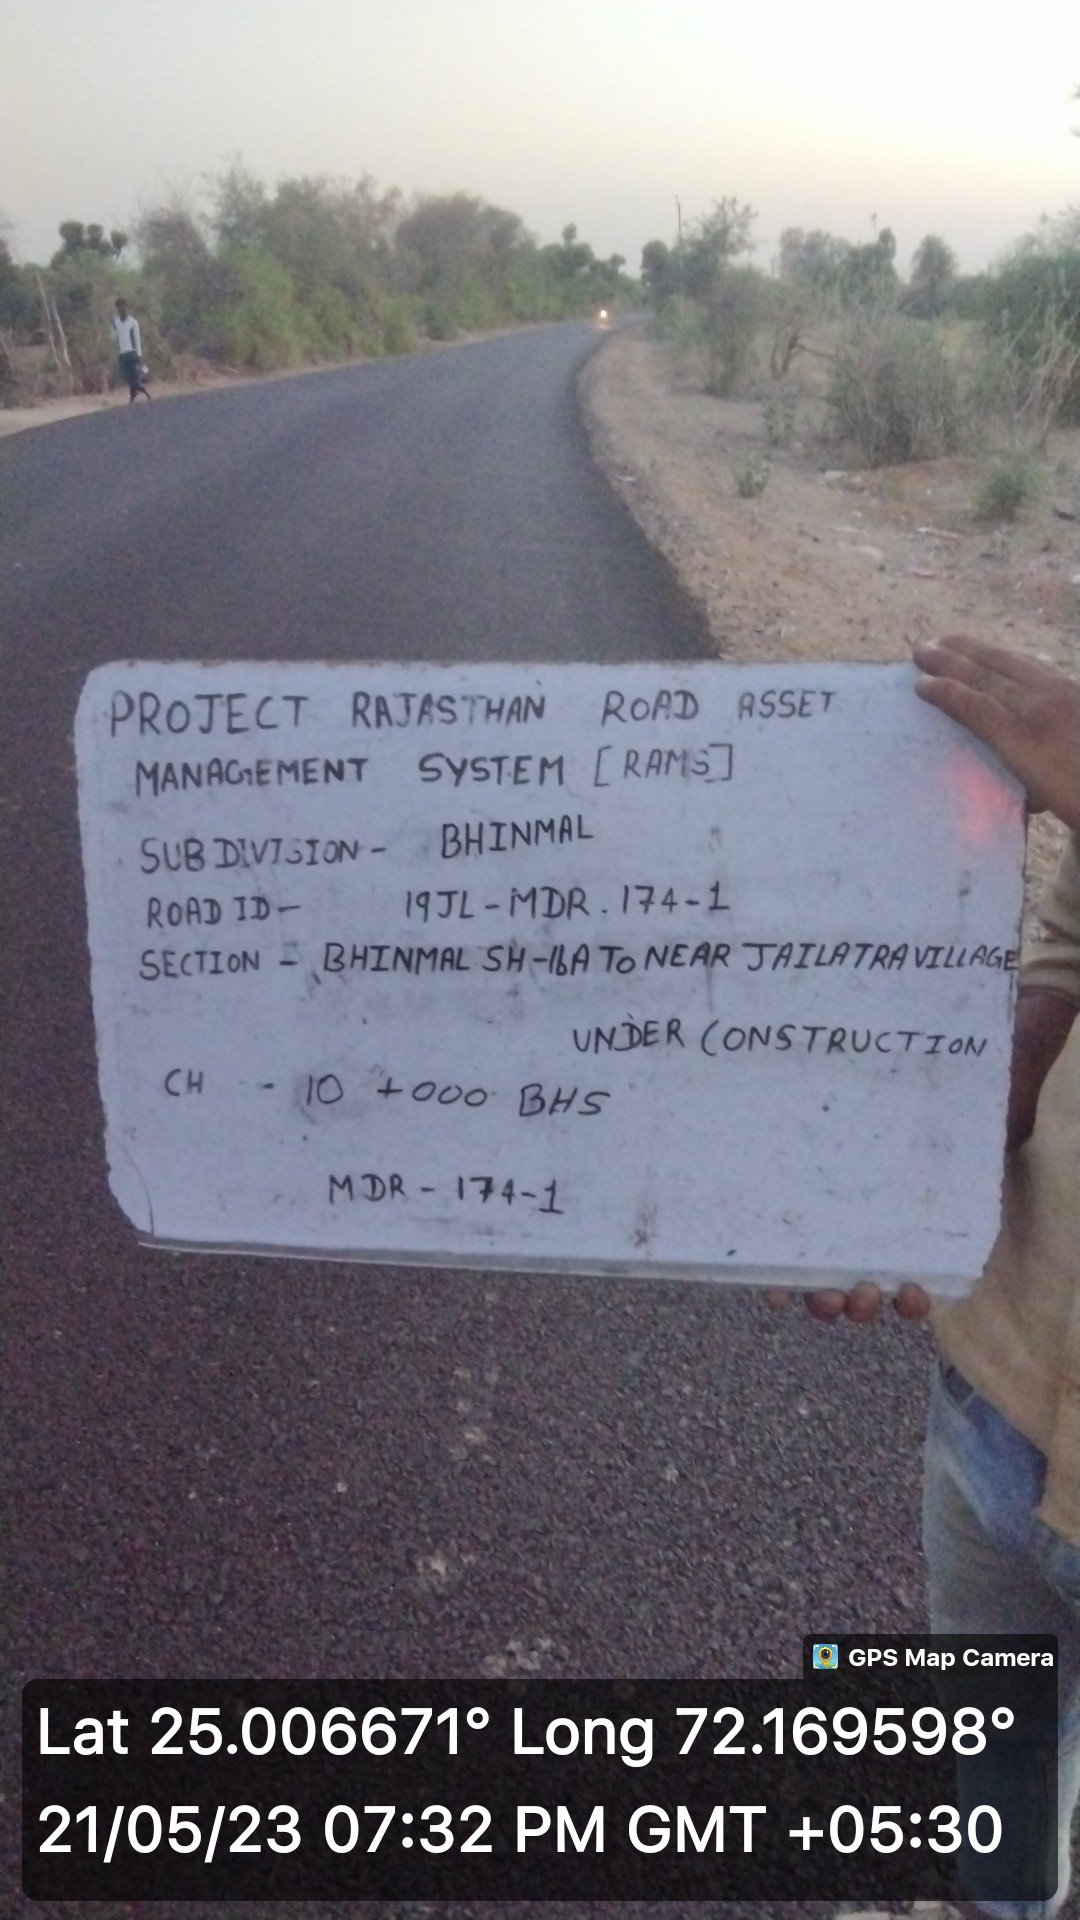 PROJECT RAJASTHAN ROAD ASSET
MANAGEMENT SYSTEM [RAMS]
SUBDIVISION - BHINMAL
ROAD ID - 19JL-MDR.174-1
SECTION - BHINMAL SH-16A TO NEAR JAILATRA VILLAGE
UNDER CONSTRUCTION
CH - 10 +000 BHS
MDR - 174-1
GPS Map Camera
Lat 25.006671° Long 72.169598°
21/05/23 07:32 PM GMT +05:30